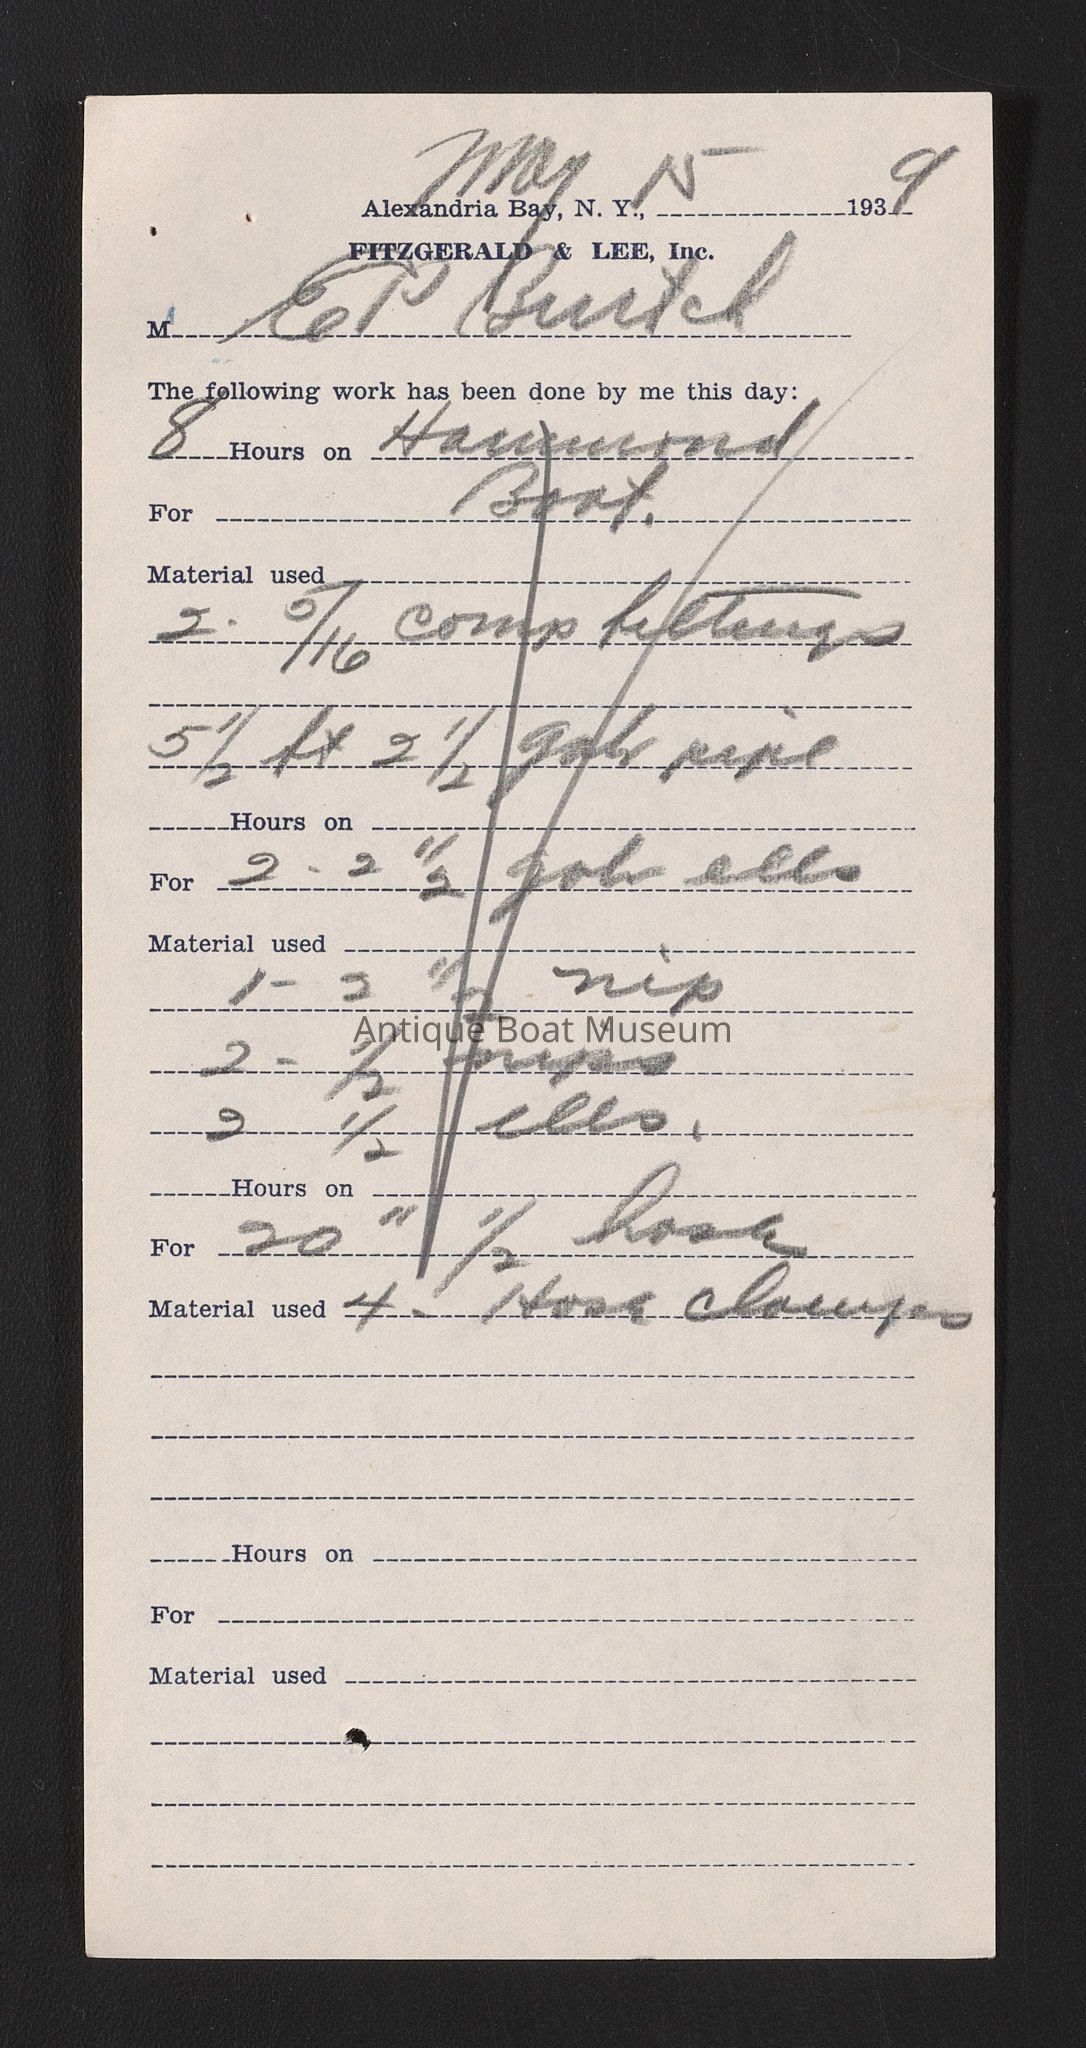 May 15 9
Alexandria Bay, N. Y., 193
FITZGERALD & LEE, Inc.
M EP Burtch
The following work has been done by me this day:
8 Hours on Hammond
For Boat.
Material used
2. 5/16 comp fittings
5 1/2 ft 2 1/2 galv pipe
Hours on
For 2 - 2 1/2 galv ells
Material used
1 - 2 1/2 nip
Antique Boat Museum
2 - 1/2 nips
2 1/2 ells.
Hours on
For 20" 1/2 hose
Material used 4 - Hose clamps
Hours on
For
Material used